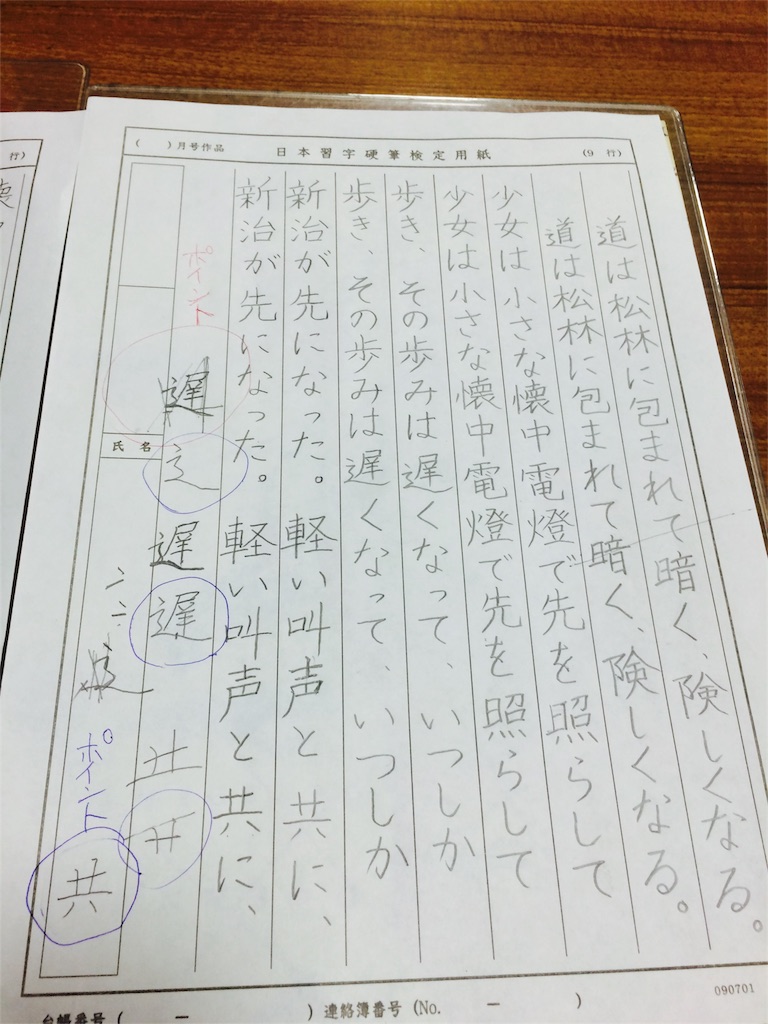 ( )月号作品 日本習字硬筆検定用紙 (9 行)
道は松林に包まれて暗く、険しくなる。
道は松林に包まれて暗く、険しくなる。
少女は小さな懐中電燈で先を照らして
少女は小さな懐中電燈で先を照らして
歩き、その歩みは遅くなって、いつしか
歩き、その歩みは遅くなって、いつしか
新治が先になった。軽い叫声と共に、
新治が先になった。軽い叫声と共に、
ポイント
遅
辶
遅
遅
氏名
ポイント
共
台帳番号 ( － ) 連絡簿番号 (No. － )
090701
行)